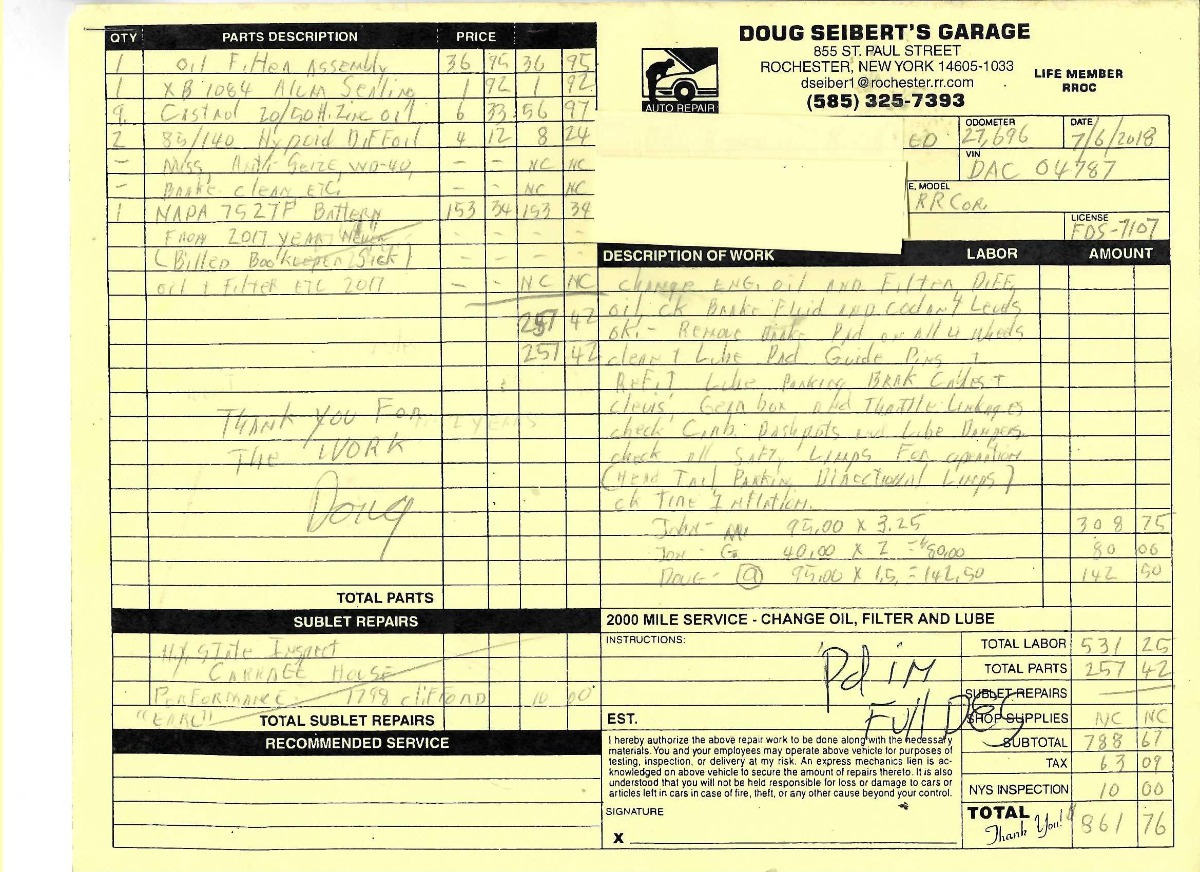 DOUG SEIBERT'S GARAGE
855 ST. PAUL STREET
ROCHESTER, NEW YORK 14605-1033
dseiber1@rochester.rr.com
(585) 325-7393
LIFE MEMBER
RROC
AUTO REPAIR
ED
ODOMETER
27,696
DATE
7/6/2018
VIN
DAC 04787
E, MODEL
RR Cor.
LICENSE
FDS-7107
QTY PARTS DESCRIPTION PRICE
1 Oil Filter Assembly 36 95 36 95
1 XB 1084 Alum Sealing 1 92 1 92
9 Castrol 20/50 H. Zinc oil 6 33 56 97
2 85/140 Hypoid Diff oil 4 12 8 24
- Misc, Anti Seize, WD-40, - - NC NC
- Brake clean ETC. - - NC NC
1 NAPA 7527F Battery 153 34 153 34
From 2017 year - - - -
(Billed Bookkeeper Sick) - - - -
oil & Filter ETC 2017 - - NC NC
257 42
257 42
Thank you For
The Work
Doug
TOTAL PARTS
SUBLET REPAIRS
N.Y. State Inspect
Carriage House
Performance 1798 Clifford 10 00
"EARL"
TOTAL SUBLET REPAIRS
RECOMMENDED SERVICE
DESCRIPTION OF WORK LABOR AMOUNT
change Eng. oil and Filter, Diff,
oil, ck Brake Fluid and coolant Levels
ok. - Remove Brake Pad on All 4 Wheels
clean & Lube Pad Guide Pins &
Refit Lube Parking Brak Cables &
clevis, Gear box and Throttle Linkages
check Carb. Dashpots and Lube Dampers
check all Saft, Lamps For operation
(Head Tail Parking Directional Lamps)
ck Tire Inflation.
John - 95.00 x 3.25 308 75
Jon - G 40.00 x 2 = $80.00 80 00
Doug - @ 95.00 x 1.5 = 142.50 142 50
2000 MILE SERVICE - CHANGE OIL, FILTER AND LUBE
INSTRUCTIONS:
Pd in
Full DEC
EST.
I hereby authorize the above repair work to be done along with the necessary
materials. You and your employees may operate above vehicle for purposes of
testing, inspection, or delivery at my risk. An express mechanics lien is ac-
knowledged on above vehicle to secure the amount of repairs thereto. It is also
understood that you will not be held responsible for loss or damage to cars or
articles left in cars in case of fire, theft, or any other cause beyond your control.
SIGNATURE
X
TOTAL LABOR 531 25
TOTAL PARTS 257 42
SUBLET REPAIRS
SHOP SUPPLIES NC NC
SUBTOTAL 788 67
TAX 63 09
NYS INSPECTION 10 00
TOTAL 861 76
Thank You!